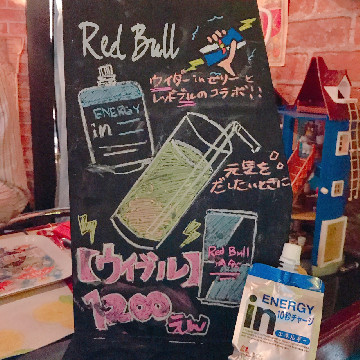 Red Bull
ウイダーinゼリーと
レッドブルのコラボ!!
ENERGY
in
元気を
だしたいときに
Red Bull
【ウイブル】
1200えん
ENERGY
in
10秒チャージ
エネルギー